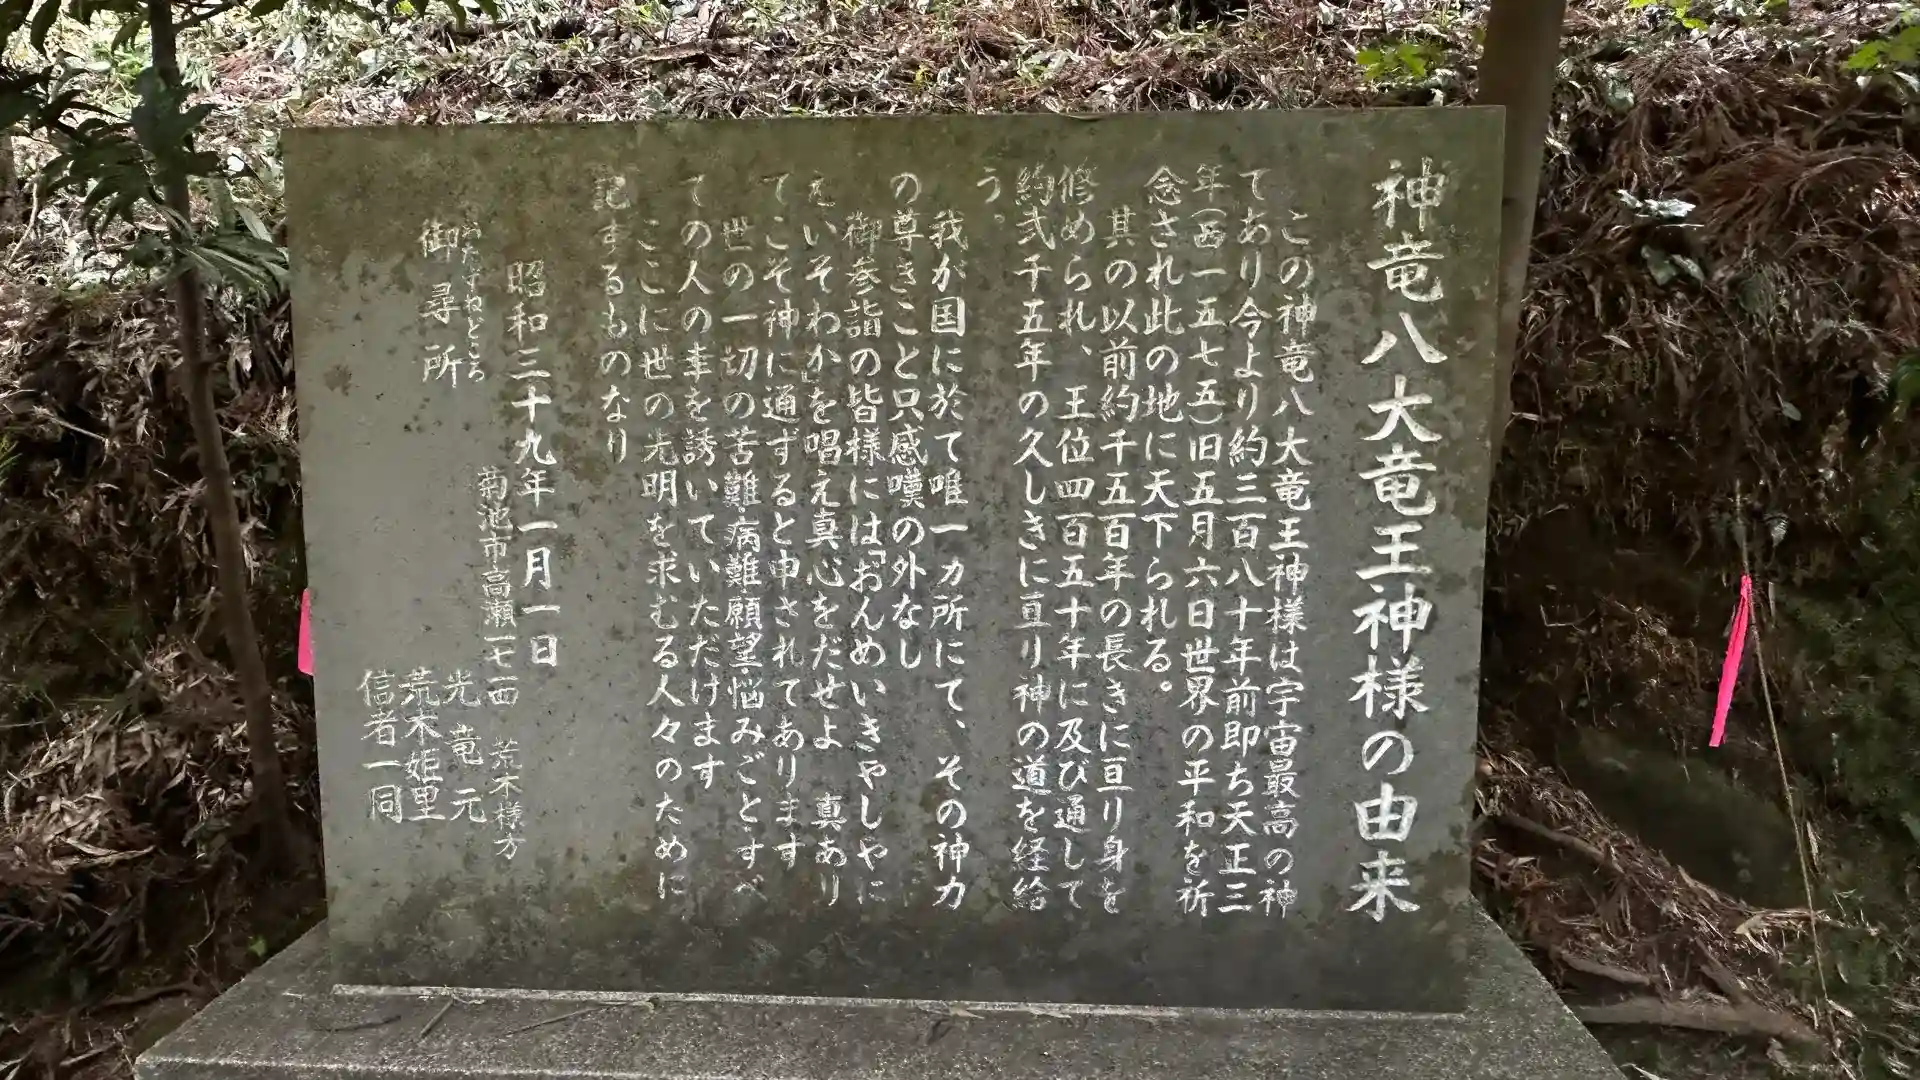 神竜八大竜王神様の由来
この神竜八大竜王神様は宇宙最高の神
であり今より約三百八十年前即ち天正三
年(西一五七五)旧五月六日世界の平和を祈
念され此の地に天下られる。
其の以前約千五百年の長きに亘り身を
修められ、王位四百五十年に及び通して
約弐千五年の久しきに亘り神の道を経給
う。
我が国に於て唯一カ所にて、その神力
の尊きこと只感嘆の外なし
御参詣の皆様には「おんめいきやしやに
えいそわか」を唱え真心をだせよ 真あり
てこそ神に通ずると申されてあります
世の一切の苦難・病難・願望・悩みごとすべ
ての人の幸を誘いていただけます
ここに世の光明を求むる人々のために
記するものなり
昭和三十九年一月一日
菊池市高瀬一七一四 荒木様方
おたずねどころ
御尋所
光竜元
荒木姫里
信者一同